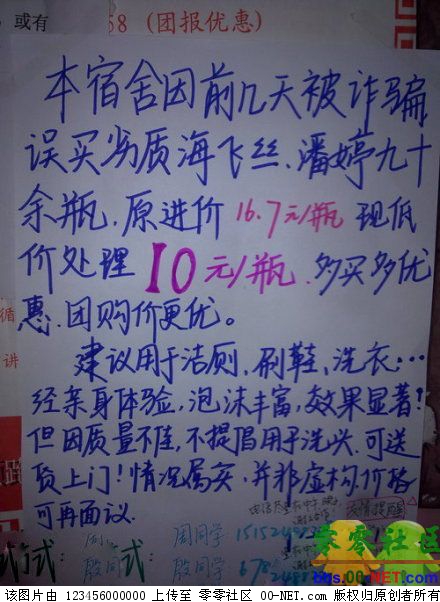 或有
58 (团报优惠)
本宿舍因前几天被诈骗
误买劣质海飞丝、潘婷九十
余瓶.原进价16.7元/瓶 现低
价处理10元/瓶.多买多优
惠.团购价更优。
循
讲
建议用于洁厕、刷鞋、洗衣…
经亲身体验,泡沫丰富,效果显著!
但因质量不佳,不提倡用于洗头.可送
货上门!情况属实,并非虚构.价格
可再面议.
友情提醒
式: 周同学 15152
殷同学
零零社区
bbs.00-NET.com
该图片由 123456000000 上传至 零零社区 00-NET.com 版权归原创者所有